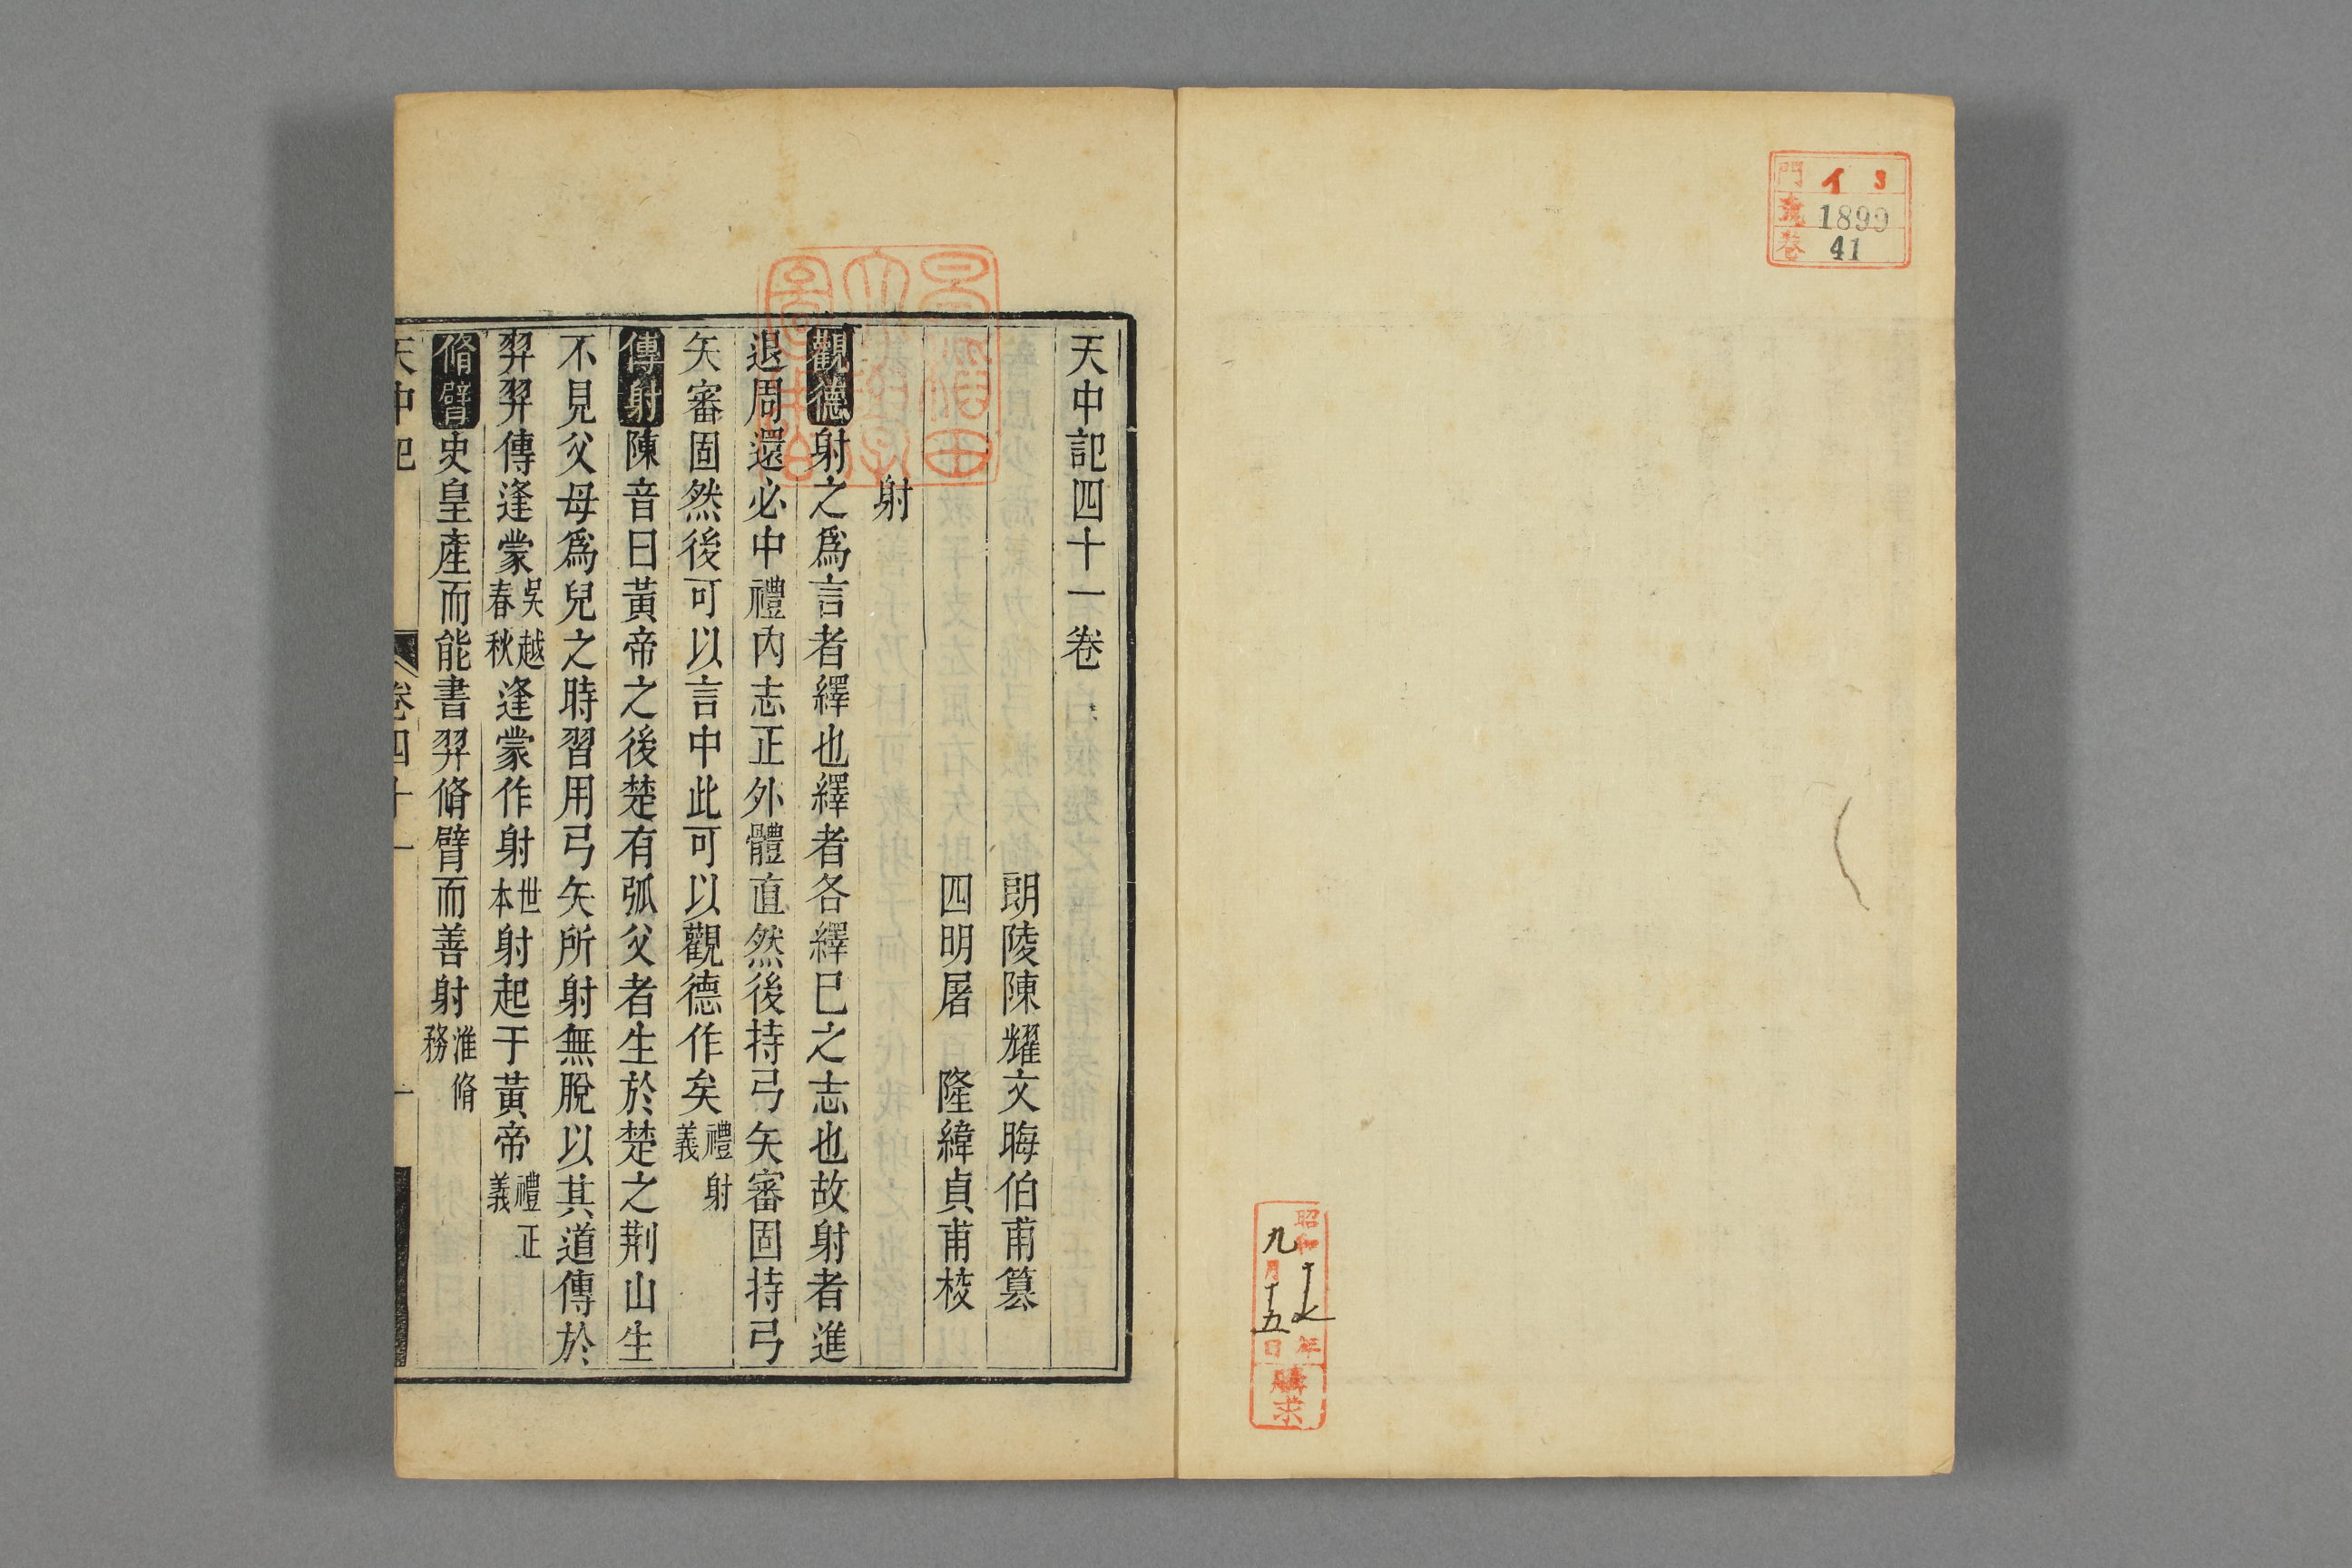 門 イ 3
號 1899
卷 41
昭和十七年
九月十五日
購求
天中記四十一卷
朗陵陳耀文晦伯甫篡
四明屠 隆緯貞甫校
射
觀德射之爲言者繹也繹者各繹巳之志也故射者進
退周還必中禮內志正外體直然後持弓矢審固持弓
矢審固然後可以言中此可以觀德作矣禮射義
傳射陳音曰黃帝之後楚有弧父者生於楚之荆山生
不見父母爲兒之時習用弓矢所射無脫以其道傳於
羿羿傳逢蒙吳越春秋逢蒙作射世本射起于黃帝禮正義
脩臂史皇產而能書羿脩臂而善射淮脩務
天中記 卷四十一 一